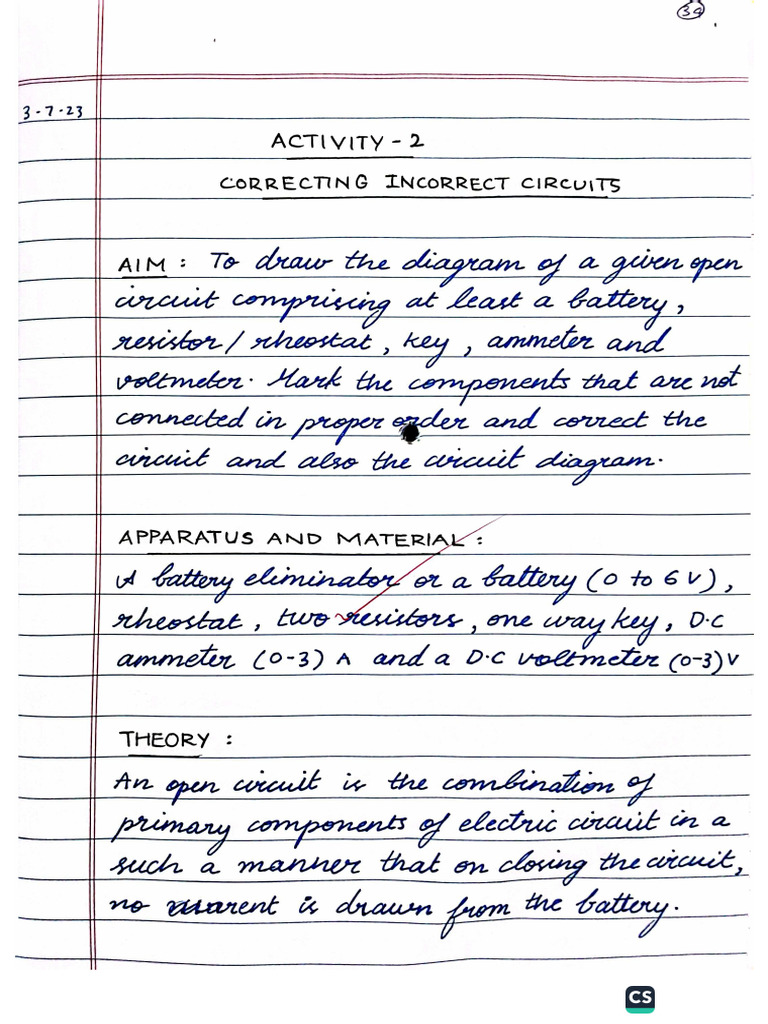 34
3-7-23
ACTIVITY - 2
CORRECTING INCORRECT CIRCUITS
AIM : To draw the diagram of a given open
circuit comprising at least a battery,
resistor / rheostat, key, ammeter and
voltmeter. Mark the components that are not
connected in proper order and correct the
circuit and also the circuit diagram.
APPARATUS AND MATERIAL :
A battery eliminator or a battery (0 to 6 V),
rheostat, two resistors, one way key, D.C
ammeter (0-3) A and a D.C voltmeter (0-3) V
THEORY :
An open circuit is the combination of
primary components of electric circuit in a
such a manner that on closing the circuit,
no current is drawn from the battery.
CS